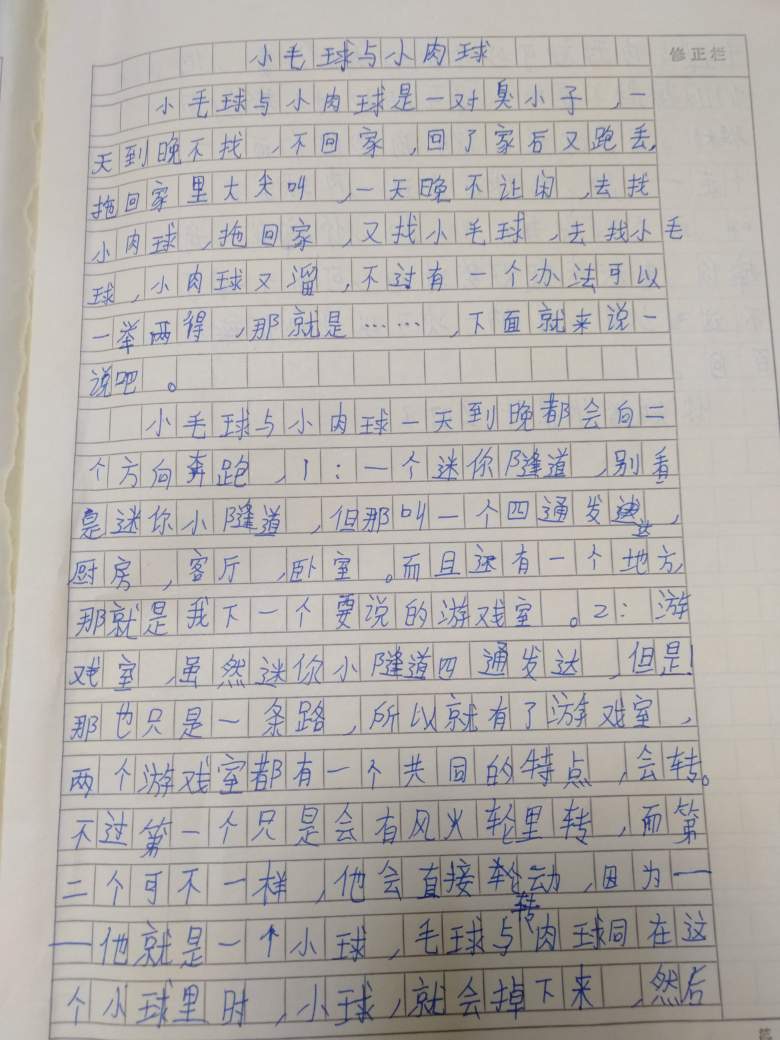 小毛球与小肉球
修正栏
小毛球与小肉球是一对臭小子，一
天到晚不找，不回家，回了家后又跑丢，
拖回家里大尖叫，一天晚不让闲，去找
小肉球，拖回家，又找小毛球，去找小毛
球，小肉球又溜，不过有一个办法可以
一举两得，那就是……，下面就来说一
说吧。
小毛球与小肉球一天到晚都会向二
个方向奔跑，1：一个迷你隧道，别看
是迷你小隧道，但那叫一个四通发达，
厨房，客厅，卧室。而且还有一个地方，
那就是我下一个要说的游戏室。2：游
戏室，虽然迷你小隧道四通发达，但是！
那也只是一条路，所以就有了游戏室，
两个游戏室都有一个共同的特点，会转。
不过第一个只是会有风火轮里转，而第
二个可不一样，他会直接转动，因为一
一他就是一个小球，毛球与肉球同在这
个小球里时，小球，就会掉下来，然后